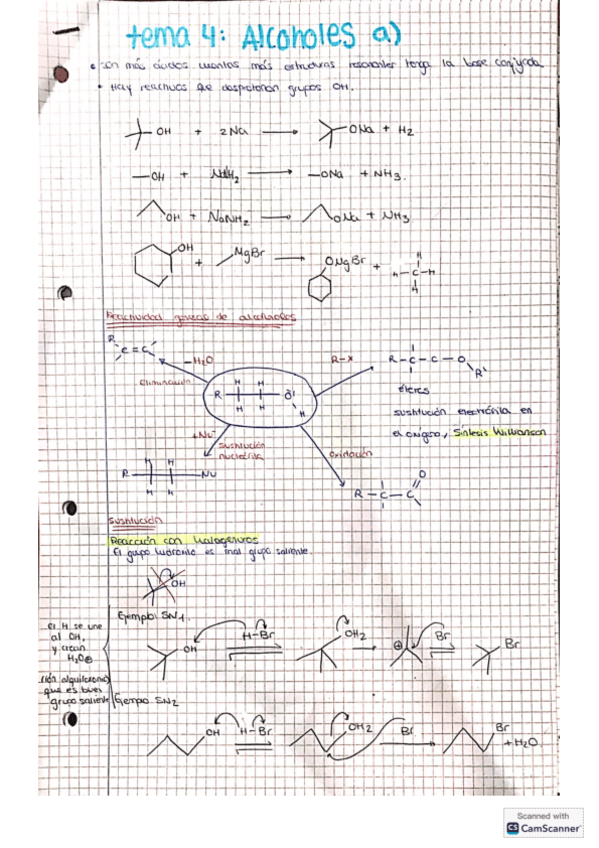 tema 4: Alcoholes a)
• Son más ácidos cuantas más estructuras resonantes tenga la base conjugada
• Hay reactivos que desprotonan grupos OH.
OH + 2Na → ONa + H2
—OH + NaNH2 → —ONa + NH3.
OH + NaNH2 → ONa + NH3
OH + MgBr → OMgBr + H-C-H
H
H
Reactividad general de alcoholes
R C=C
-H2O
R-X
R-C-C-O
R'
Eliminación
R H H O H
H H
éteres
sustitución electrófila en
el oxígeno, Síntesis Williamson
+Nu-
Sustitución
nucleófila
oxidación
R H H NU
H H
R-C-C O
Sustitución
Reacción con halogenuros
El grupo hidroxilo es mal grupo saliente.
OH
Ejemplo SN1
El H se une
al OH,
y crean
H2O⊕
(ión alquiloxonio)
que es buen
grupo saliente
OH H-Br OH2 ⊕ Br Br
Ejemplo SN2
OH H-Br OH2 Br Br
+ H2O
Scanned with
CS CamScanner